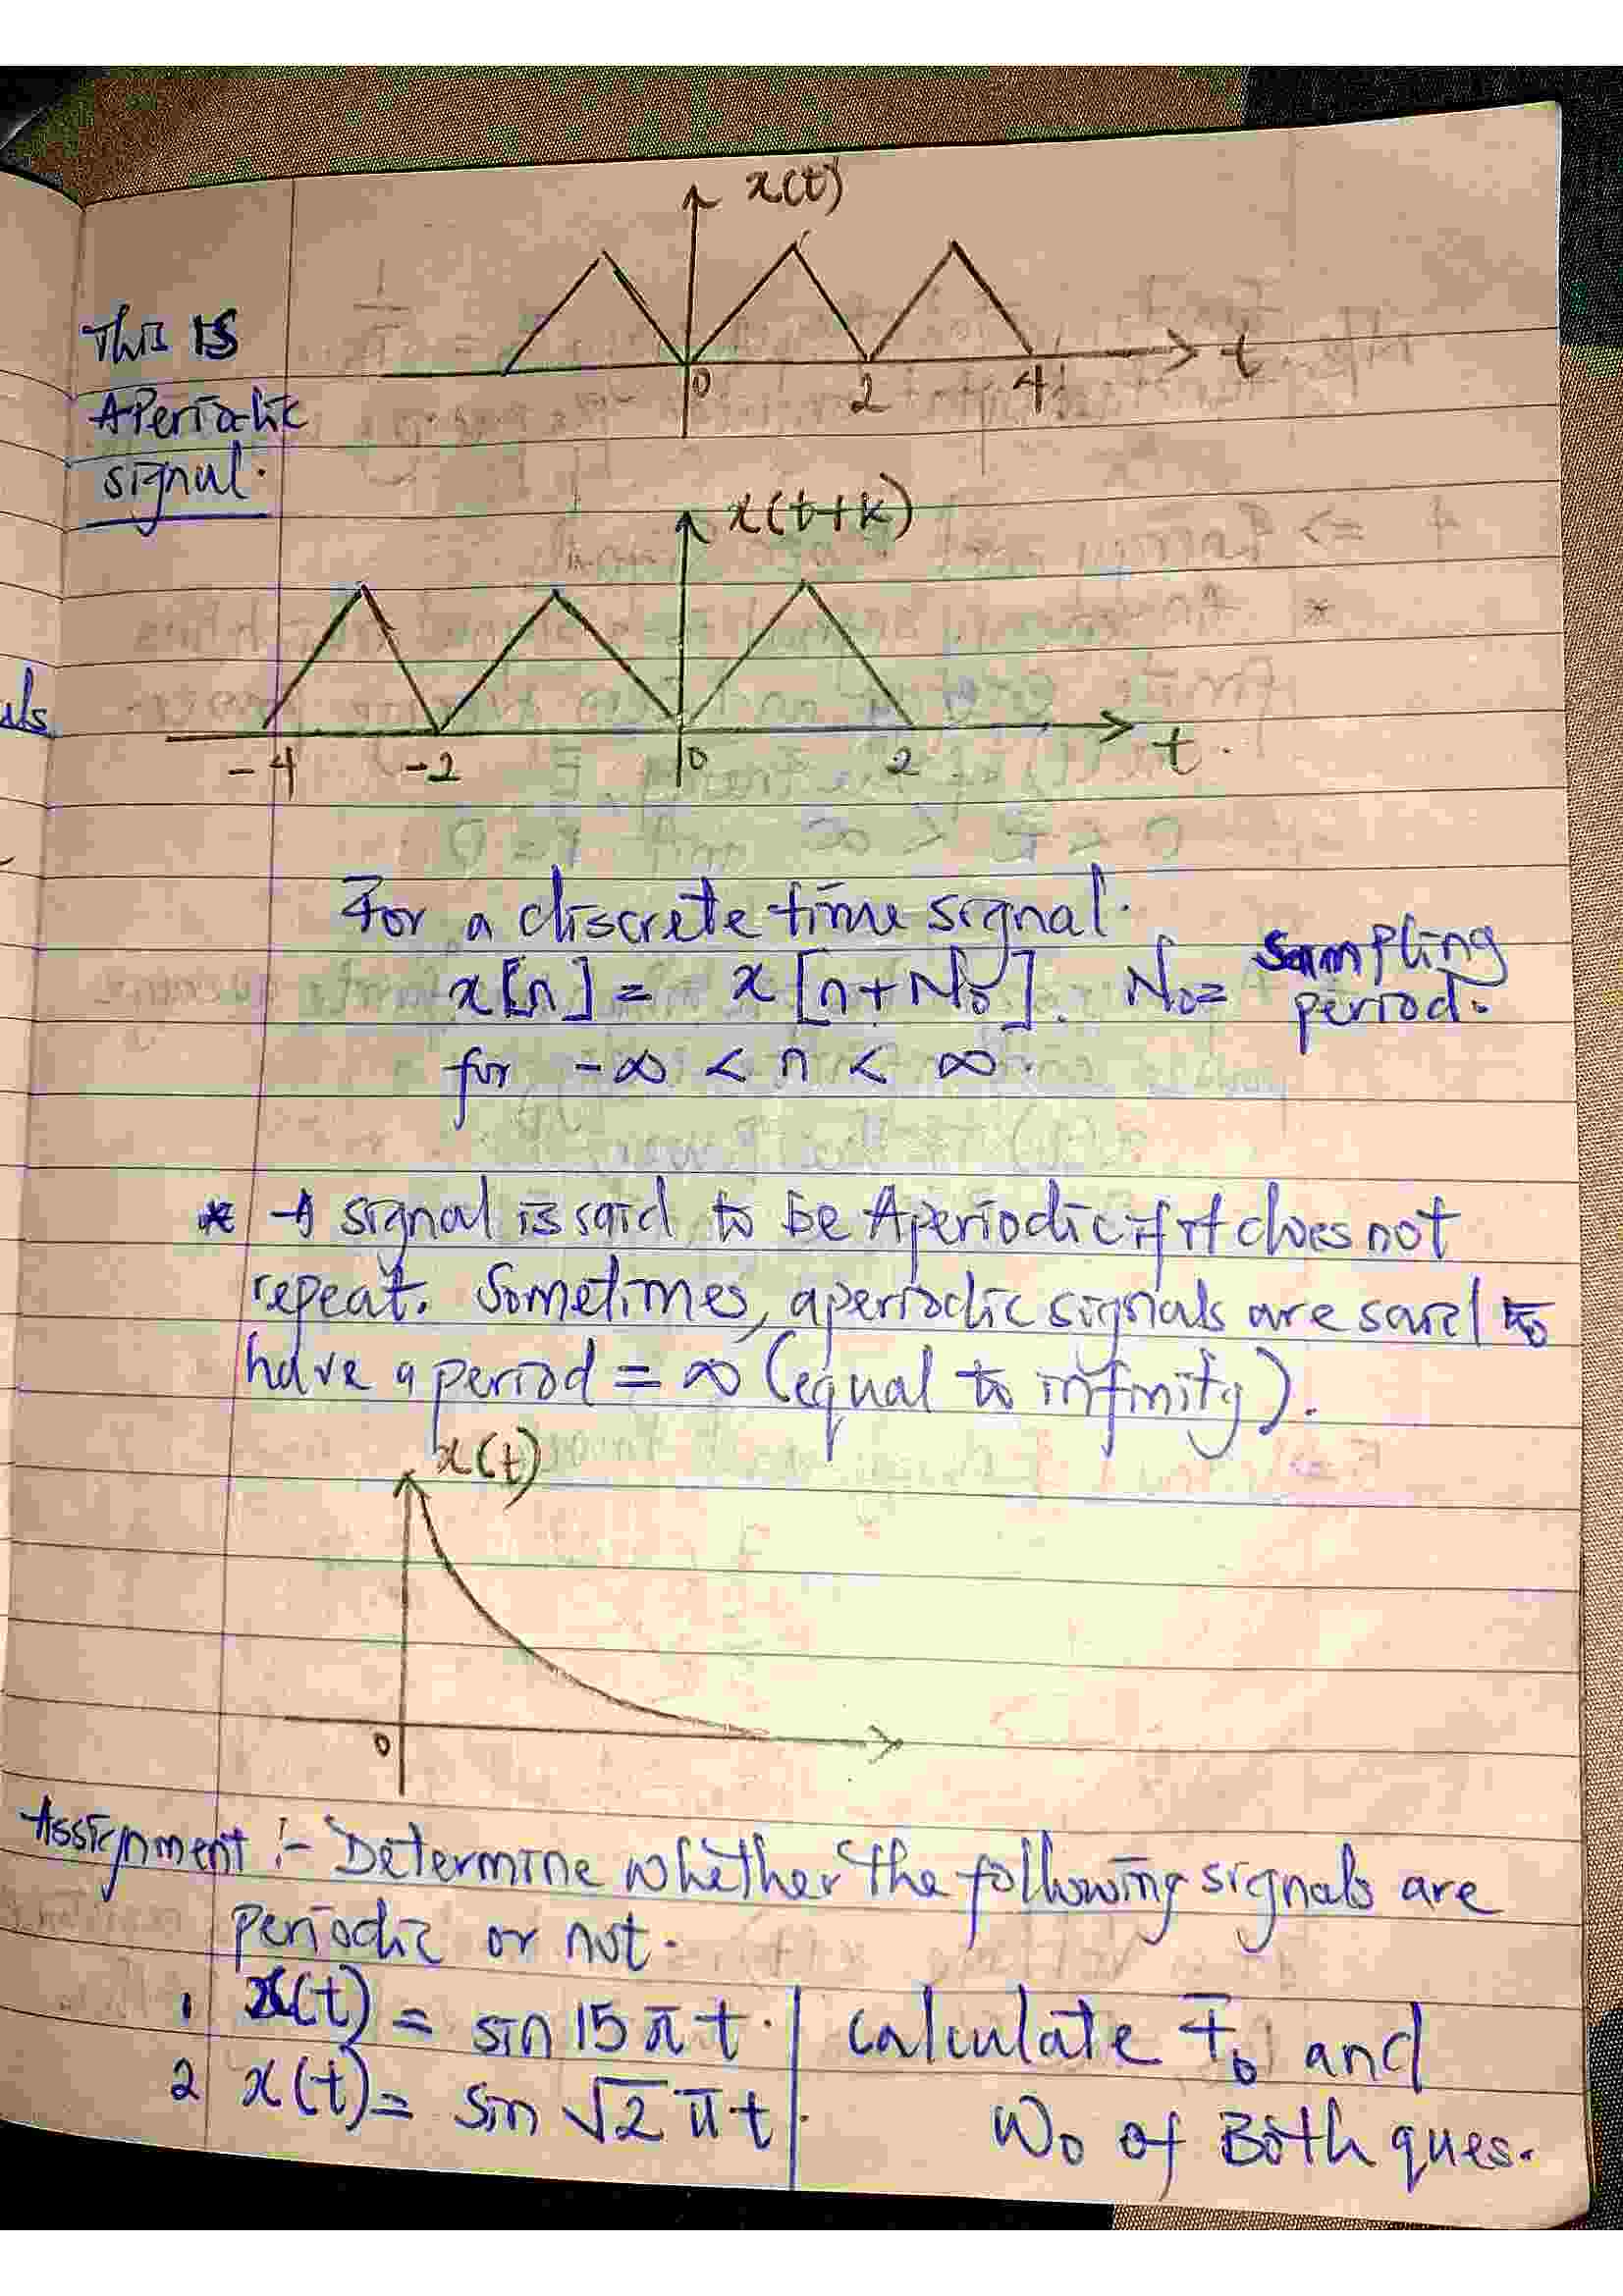 x(t)
This is
APeriodic
signal.
0 2 4 t
x(t+k)
als
-4 -2 0 2 t.
For a discrete time signal.
x[n] = x[n+N₀]. N₀ = Sampling
period.
for -∞ < n < ∞.
* A signal is said to be Aperiodic if it does not
repeat. Sometimes, aperiodic signals are said to
have a period = ∞ (equal to infinity).
x(t)
0
Assignment :- Determine whether the following signals are
periodic or not.
1. x(t) = sin 15πt. | Calculate T₀ and
2 x(t) = sin √2 πt. | W₀ of Both ques.